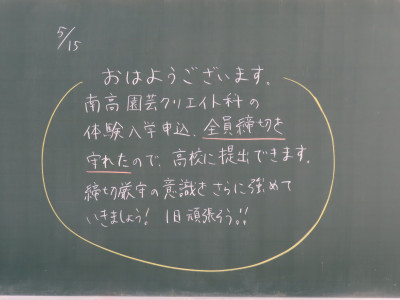 5/15
おはようございます。
南高園芸クリエイト科の
体験入学申込、全員締切を
守れたので、高校に提出できます。
締切厳守の意識をさらに強めて
いきましょう! 1日頑張ろう!!